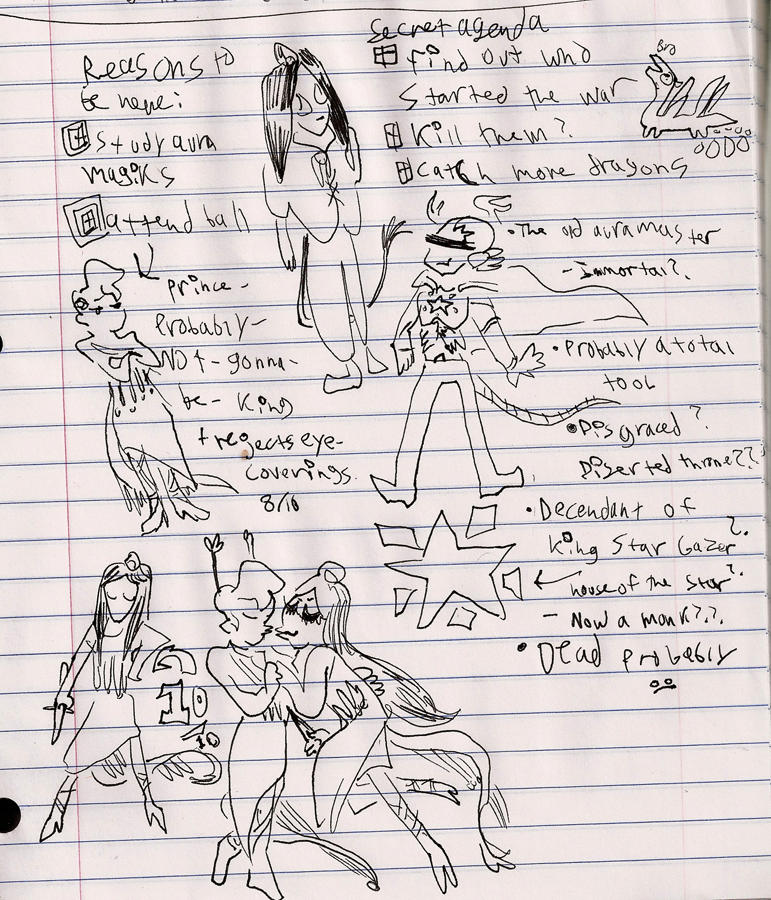 Reasons to
be here:
Study aura
magiks
attend ball
Secret agenda
find out who
started the war
Kill them?
Catch more dragons
Bro
Prince -
Probably -
NOt - gonna -
be - King
+ rejects eye-
coverings.
8/10
• The old aura master
- Immortal?
• Probably a total
tool
• Disgraced?
Diserted throne??
• Decendant of
King Star Gazer?
← house of the star?
- Now a monk???
• Dead probably
10
10